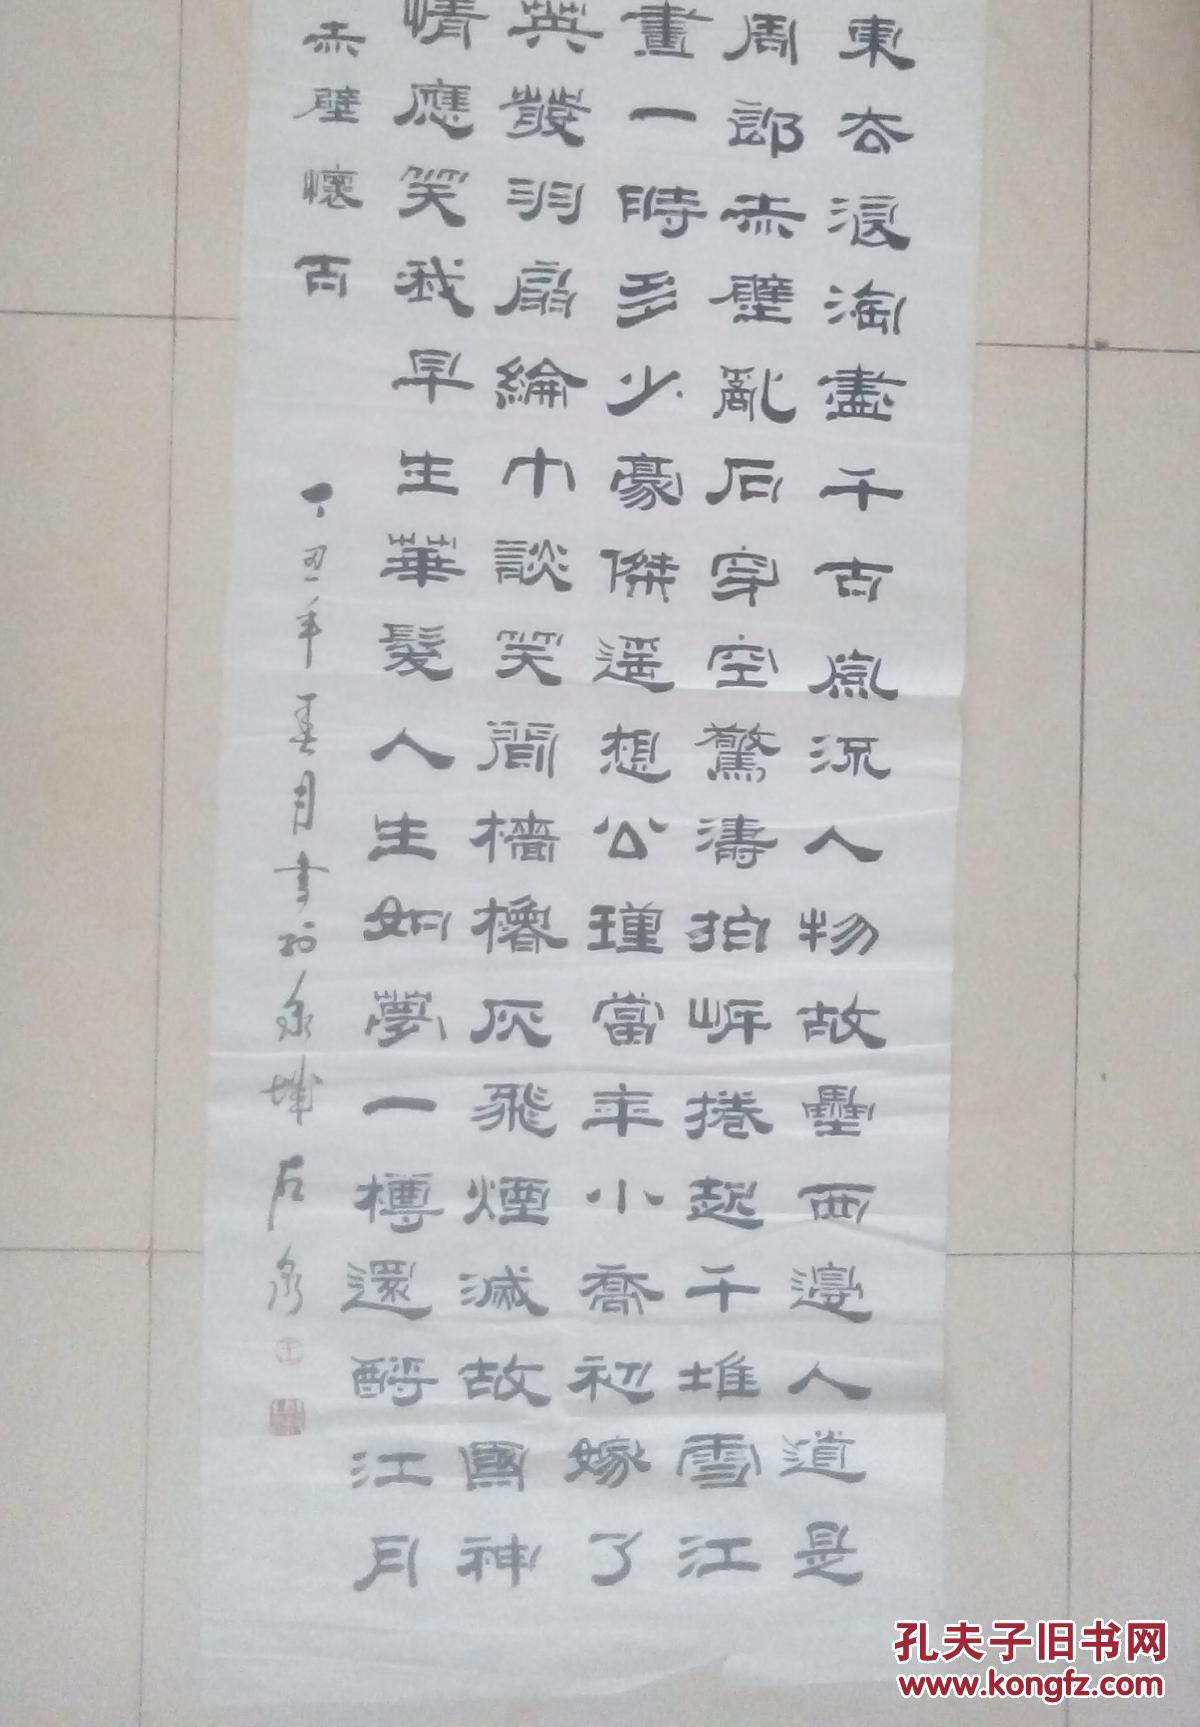 東去浪淘盡千古風流人物故壘西邊人道是
周郎赤壁亂石穿空驚濤拍岸捲起千堆雪江
畫一時多少豪傑遥想公瑾當年小喬初嫁了
英發羽扇綸巾談笑間檣櫓灰飛煙滅故國神
情應笑我早生華髮人生如夢一樽還酹江月
赤壁懷古
丁丑年春月書於泉城
孔夫子旧书网
www.kongfz.com